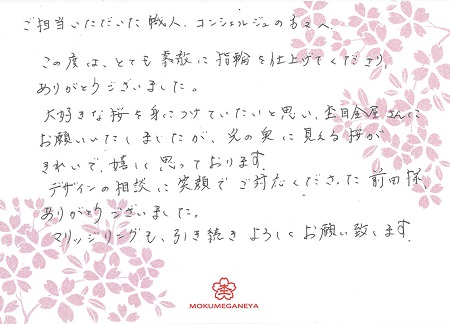 ご担当いただいた職人、コンシェルジュの方々へ
この度は、とても素敵に指輪を仕上げてくださり、
ありがとうございました。
大好きな桜を身につけていたいと思い、杢目金屋さんに
お願いいたしましたが、光の奥に見える桜が
きれいで、嬉しく思っております。
デザインの相談に笑顔でご対応くださった前田様、
ありがとうございました。
マリッジリングも、引き続きよろしくお願い致します。
MOKUMEGANEYA